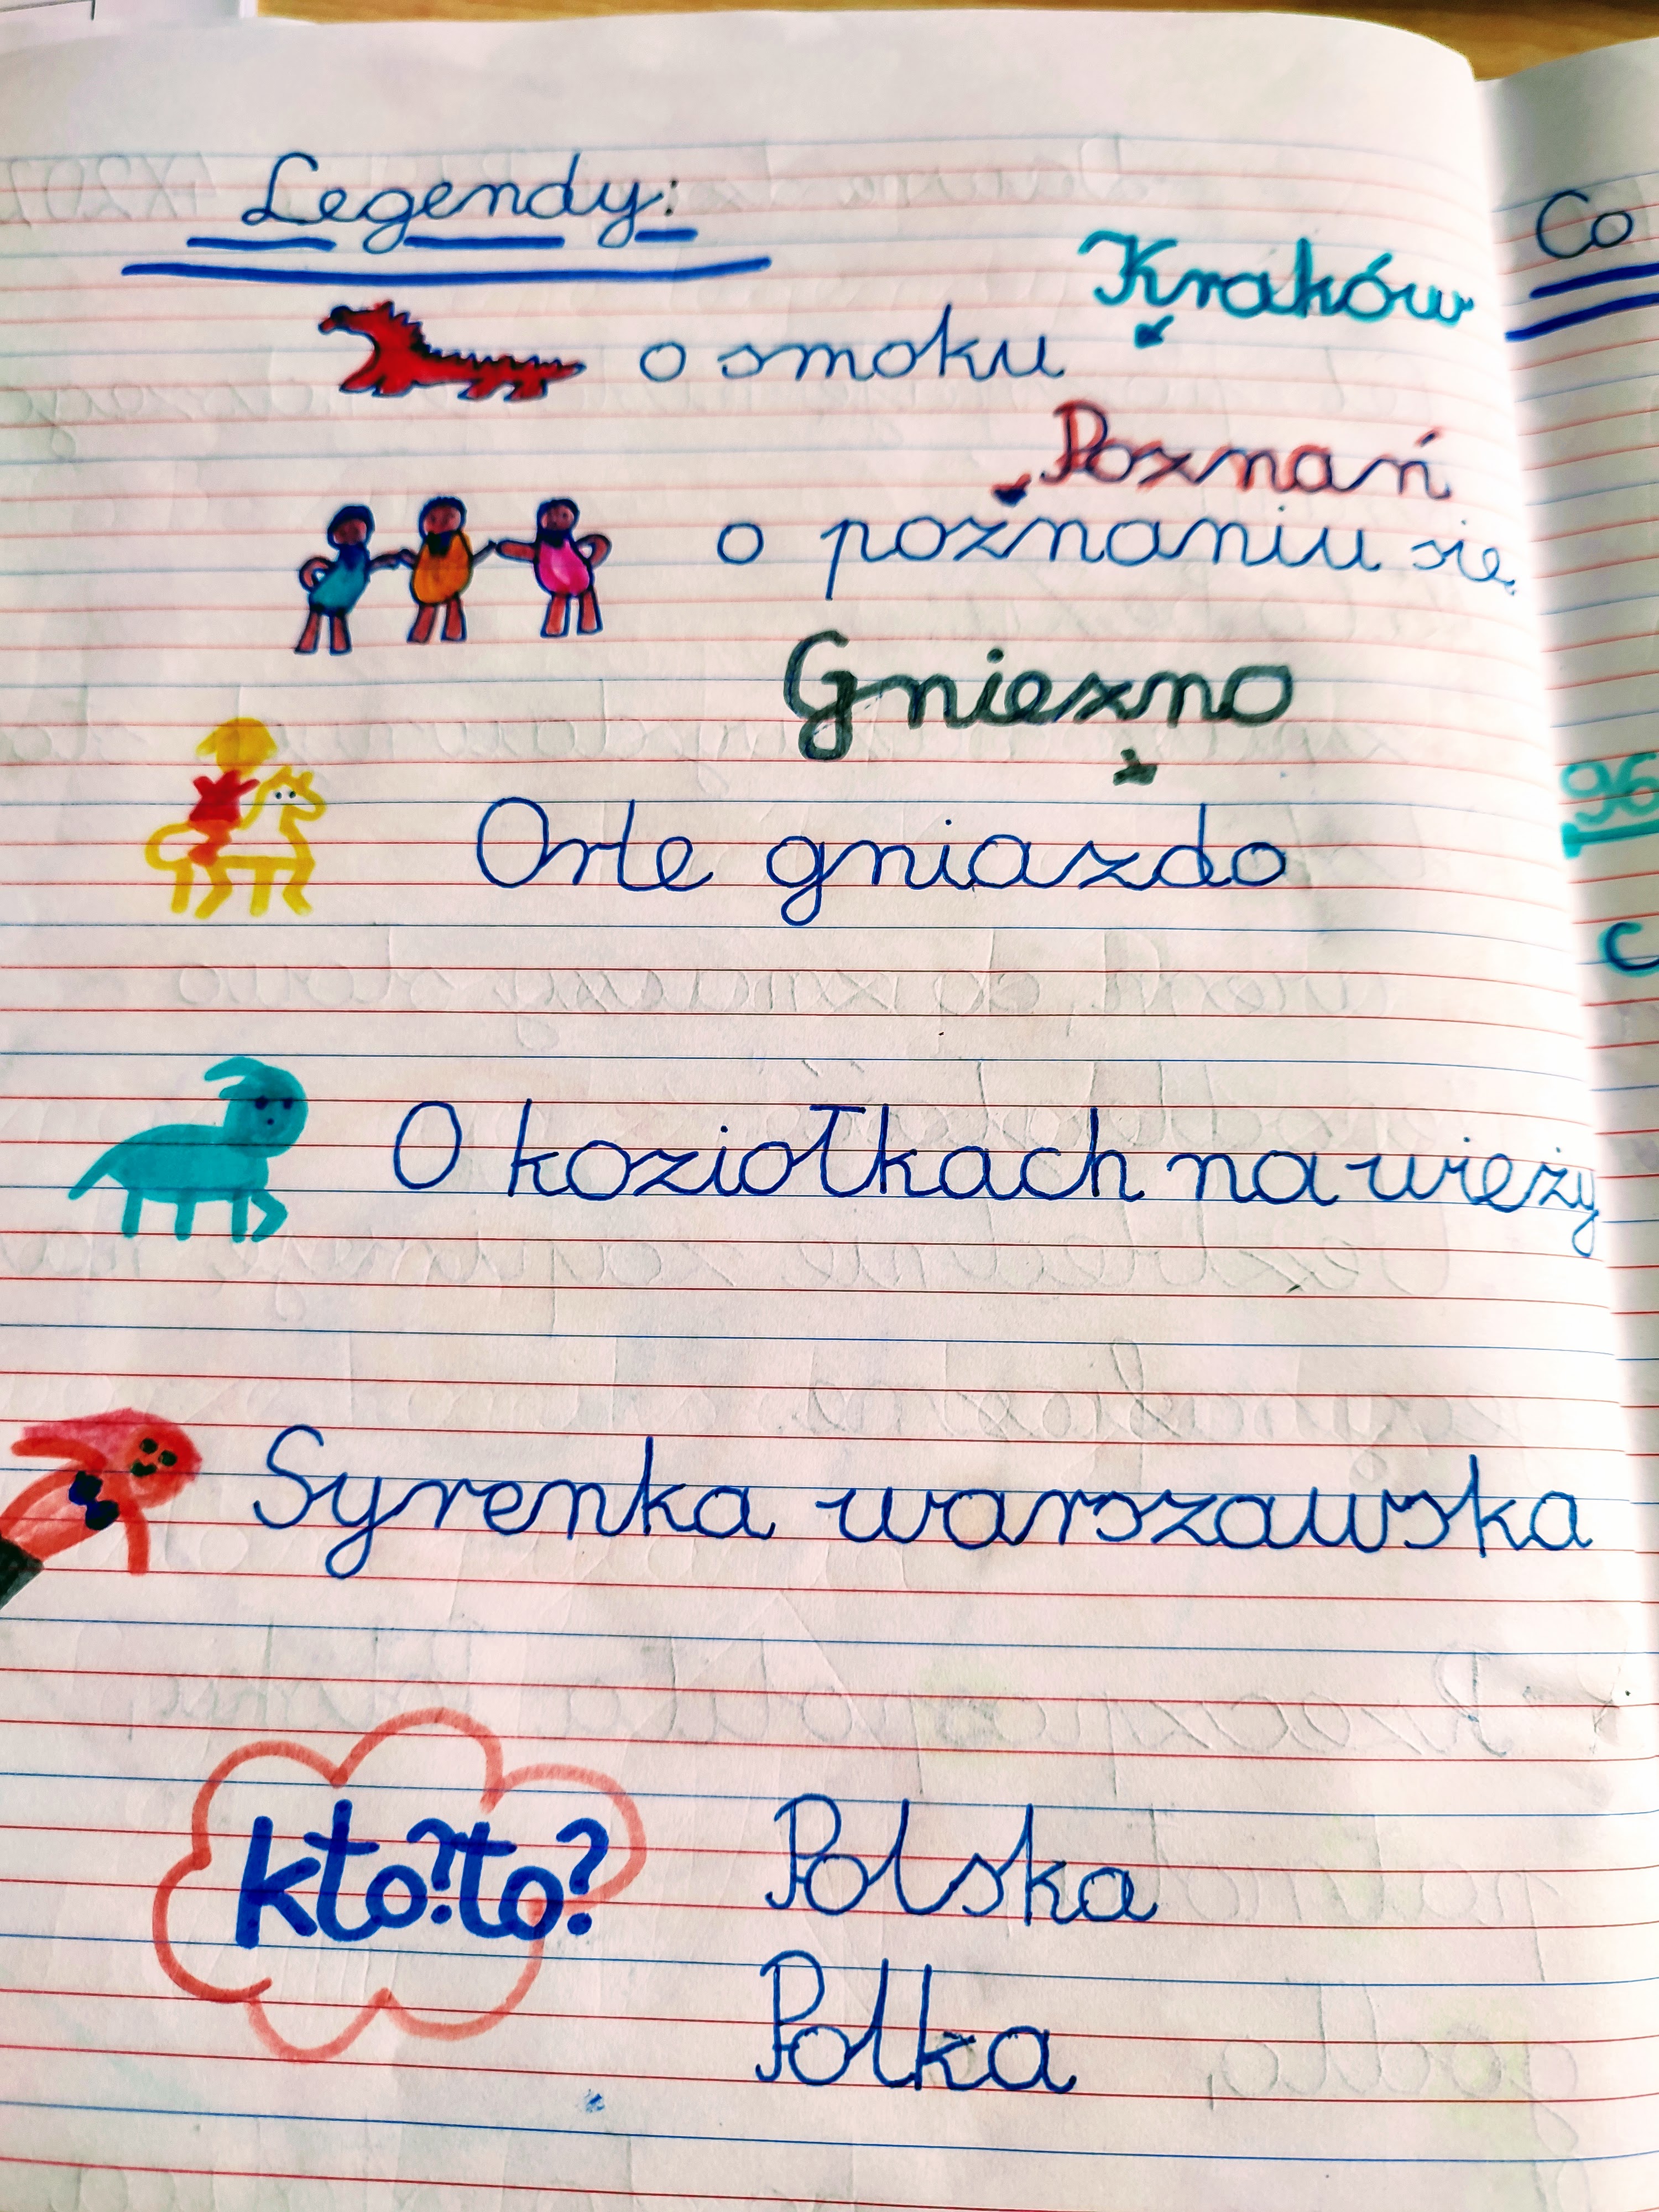 Legendy:
Kraków
o smoku
Poznań
o poznaniu się
Gniezno
Orle gniazdo
O koziołkach na wieży
Syrenka warszawska
kto? to?
Polska
Polka
Co
196